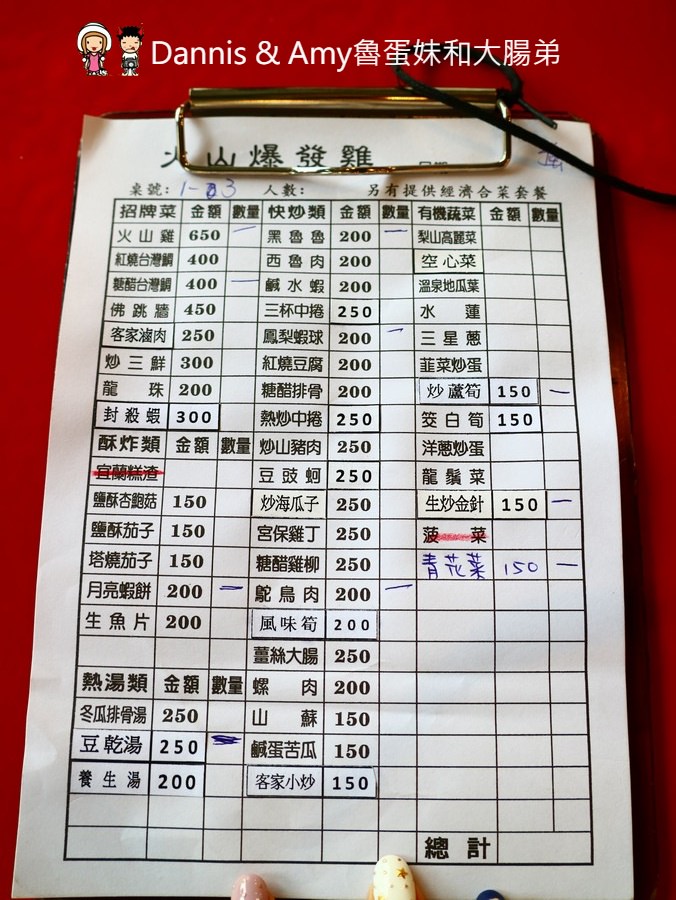 Dannis & Amy魯蛋妹和大腸弟
火山爆發雞
桌號: 1-3 人數: 另有提供經濟合菜套餐
招牌菜 金額 數量 快炒類 金額 數量 有機蔬菜 金額 數量
火山雞 650 一 黑魯魯 200 一 梨山高麗菜
紅燒台灣鯛 400 西魯肉 200 空心菜
糖醋台灣鯛 400 一 鹹水蝦 200 溫泉地瓜葉
佛跳牆 450 三杯中捲 250 水蓮
客家滷肉 250 鳳梨蝦球 200 一 三星蔥
炒三鮮 300 紅燒豆腐 200 韮菜炒蛋
龍珠 200 糖醋排骨 200 炒蘆筍 150 一
封殺蝦 300 熱炒中捲 250 筊白筍 150
酥炸類 金額 數量 炒山豬肉 250 洋蔥炒蛋
宜蘭糕渣 豆豉蚵 250 龍鬚菜
鹽酥杏鮑菇 150 炒海瓜子 250 生炒金針 150 一
鹽酥茄子 150 宮保雞丁 250 菠菜
塔燒茄子 150 糖醋雞柳 250 青花菜 150 一
月亮蝦餅 200 鴕鳥肉 200 一
生魚片 200 風味筍 200
薑絲大腸 250
熱湯類 金額 數量 螺肉 200
冬瓜排骨湯 250 山蘇 150
豆乾湯 250 鹹蛋苦瓜 150
養生湯 200 客家小炒 150
總計